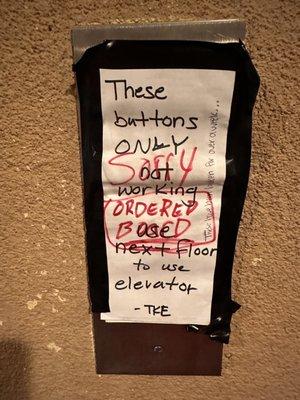 These
buttons
ONLY
SORRY
not
working
ORDERED
BOARD
use
next floor
to use
elevator
- TKE
These have been broken for over a week...